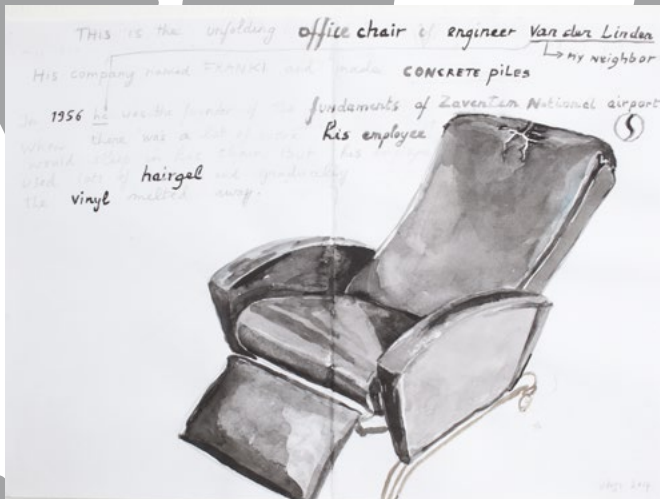 THIS is the unfolding office chair of engineer Van der Linden
My Neighbor
His company named FRANKI and made CONCRETE piles
In 1956 he was the founder of the fundaments of Zaventem National airport
When there was a lot of his employee
would sleep in his chair. But his
used lots of hairgel and gradually
the vinyl melted away.